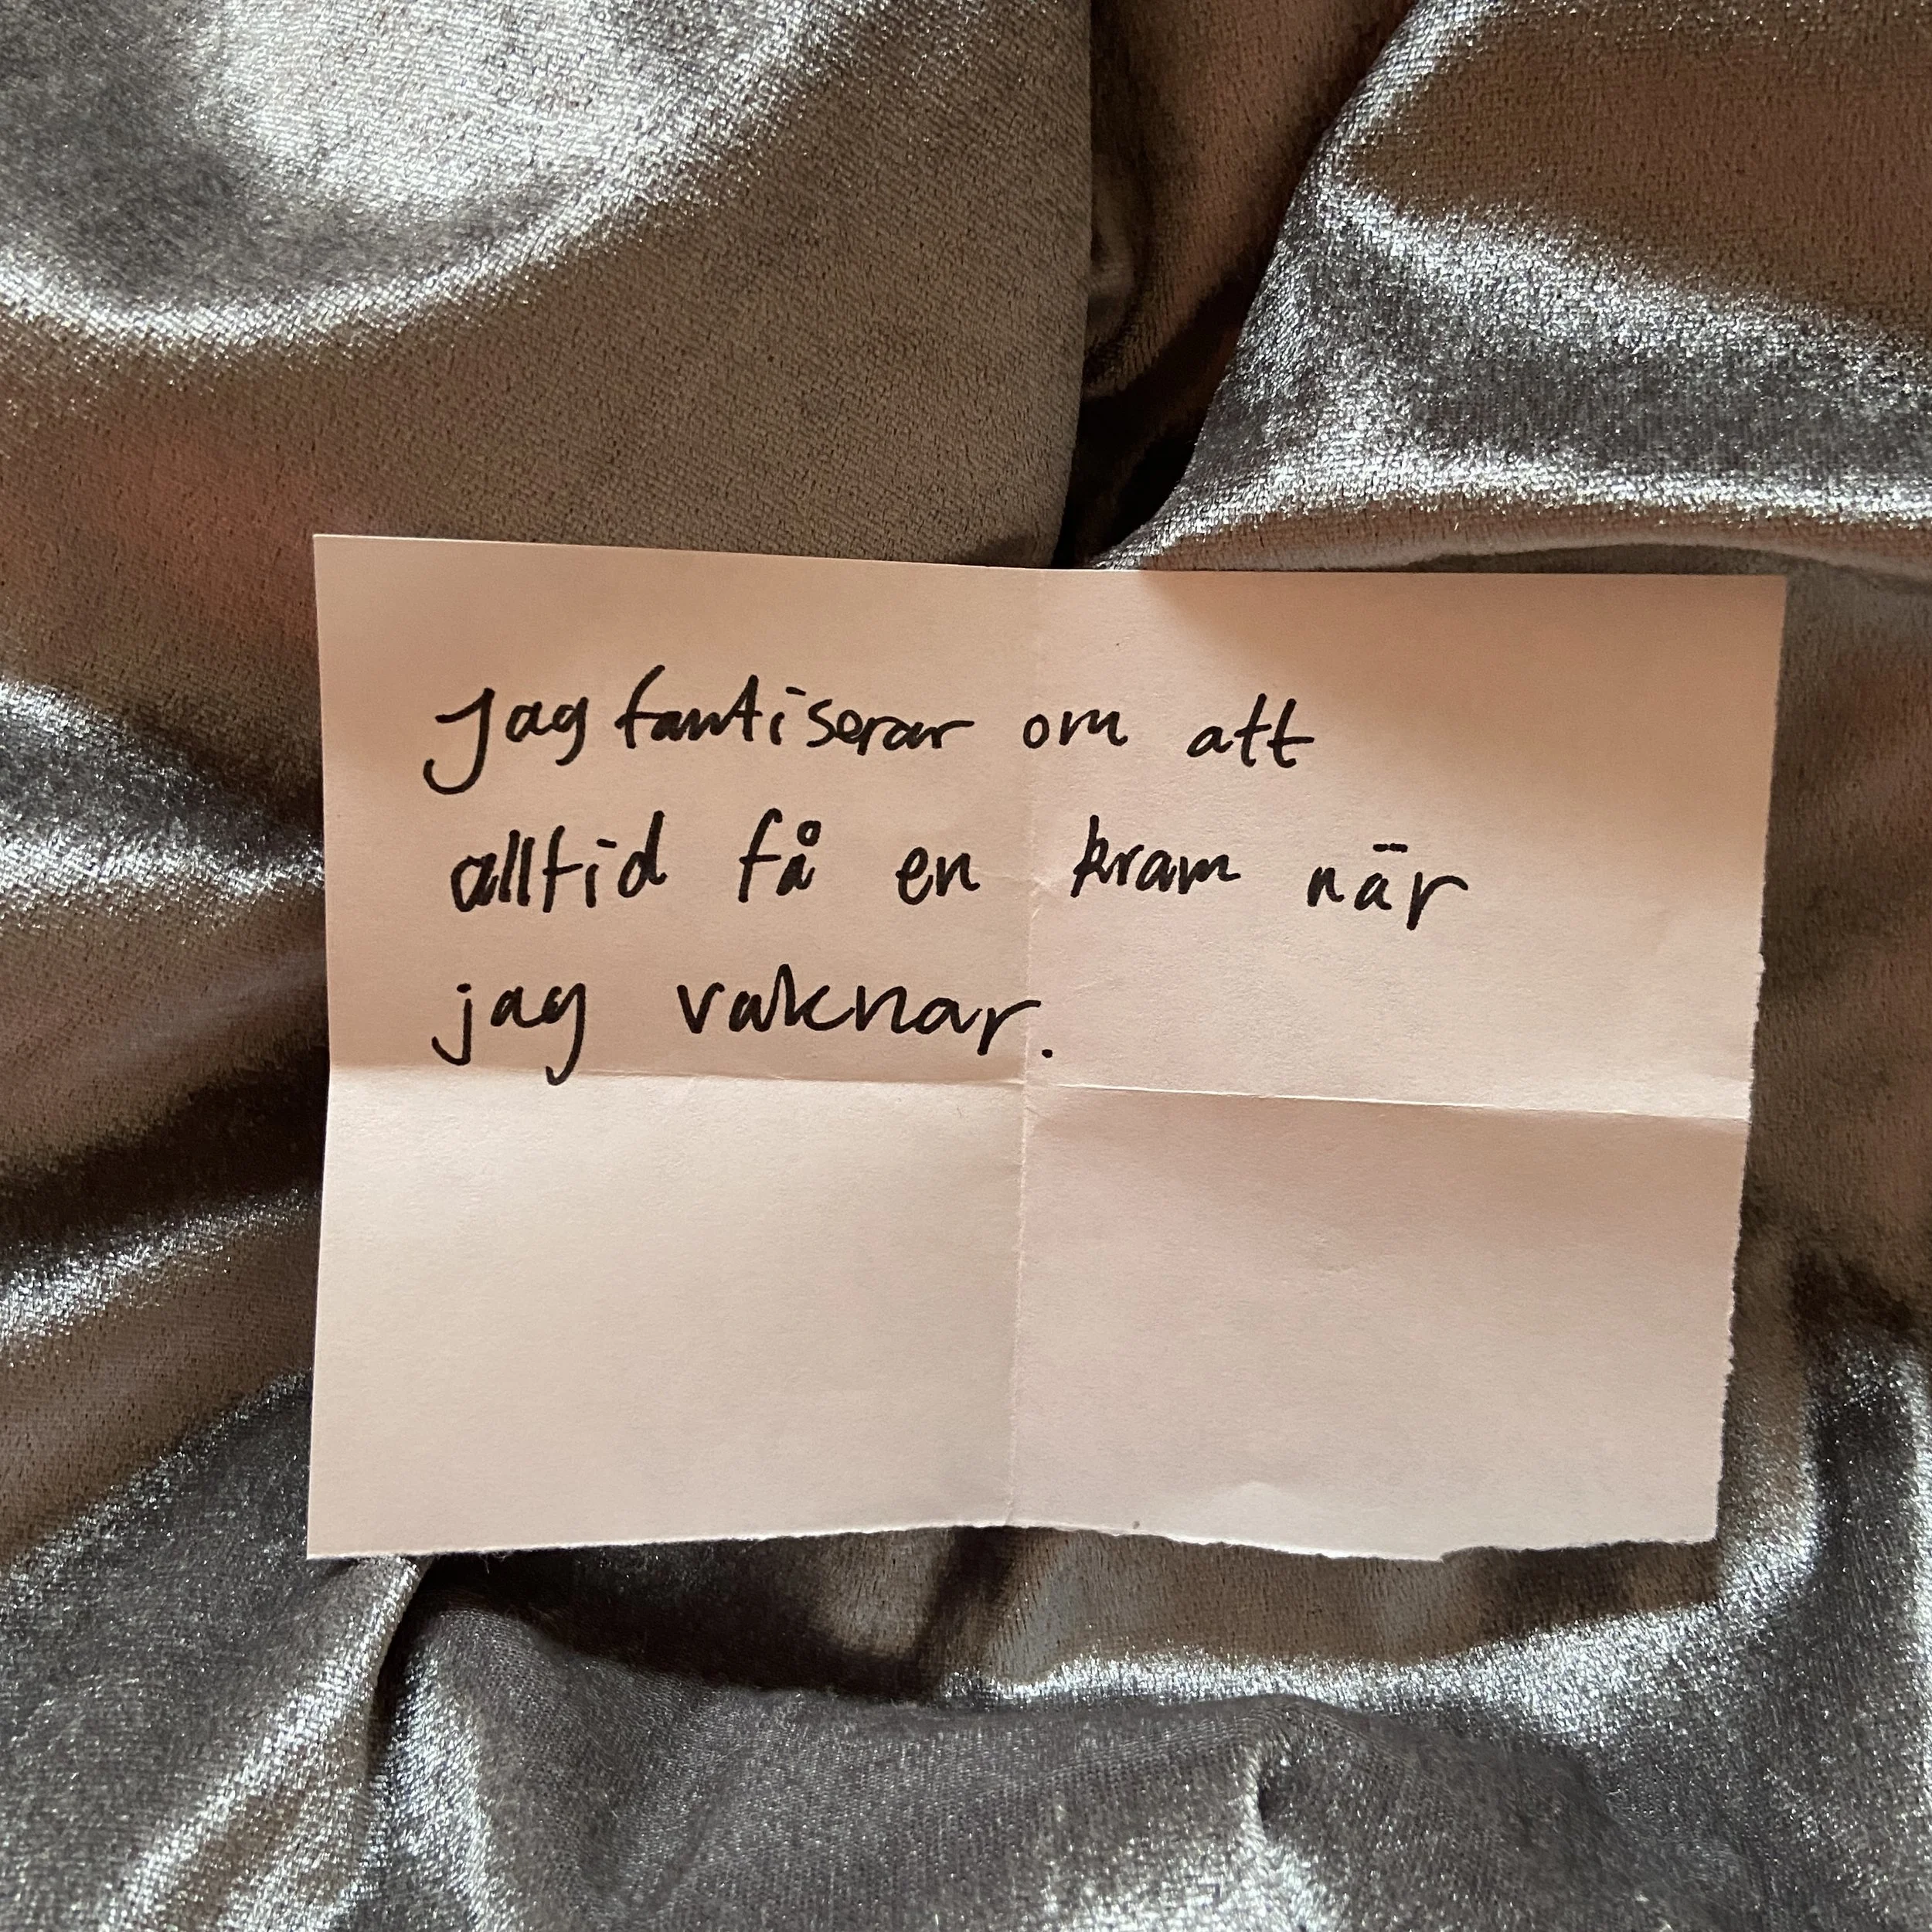 Jag fantiserar om att
alltid få en kram när
jag vaknar.